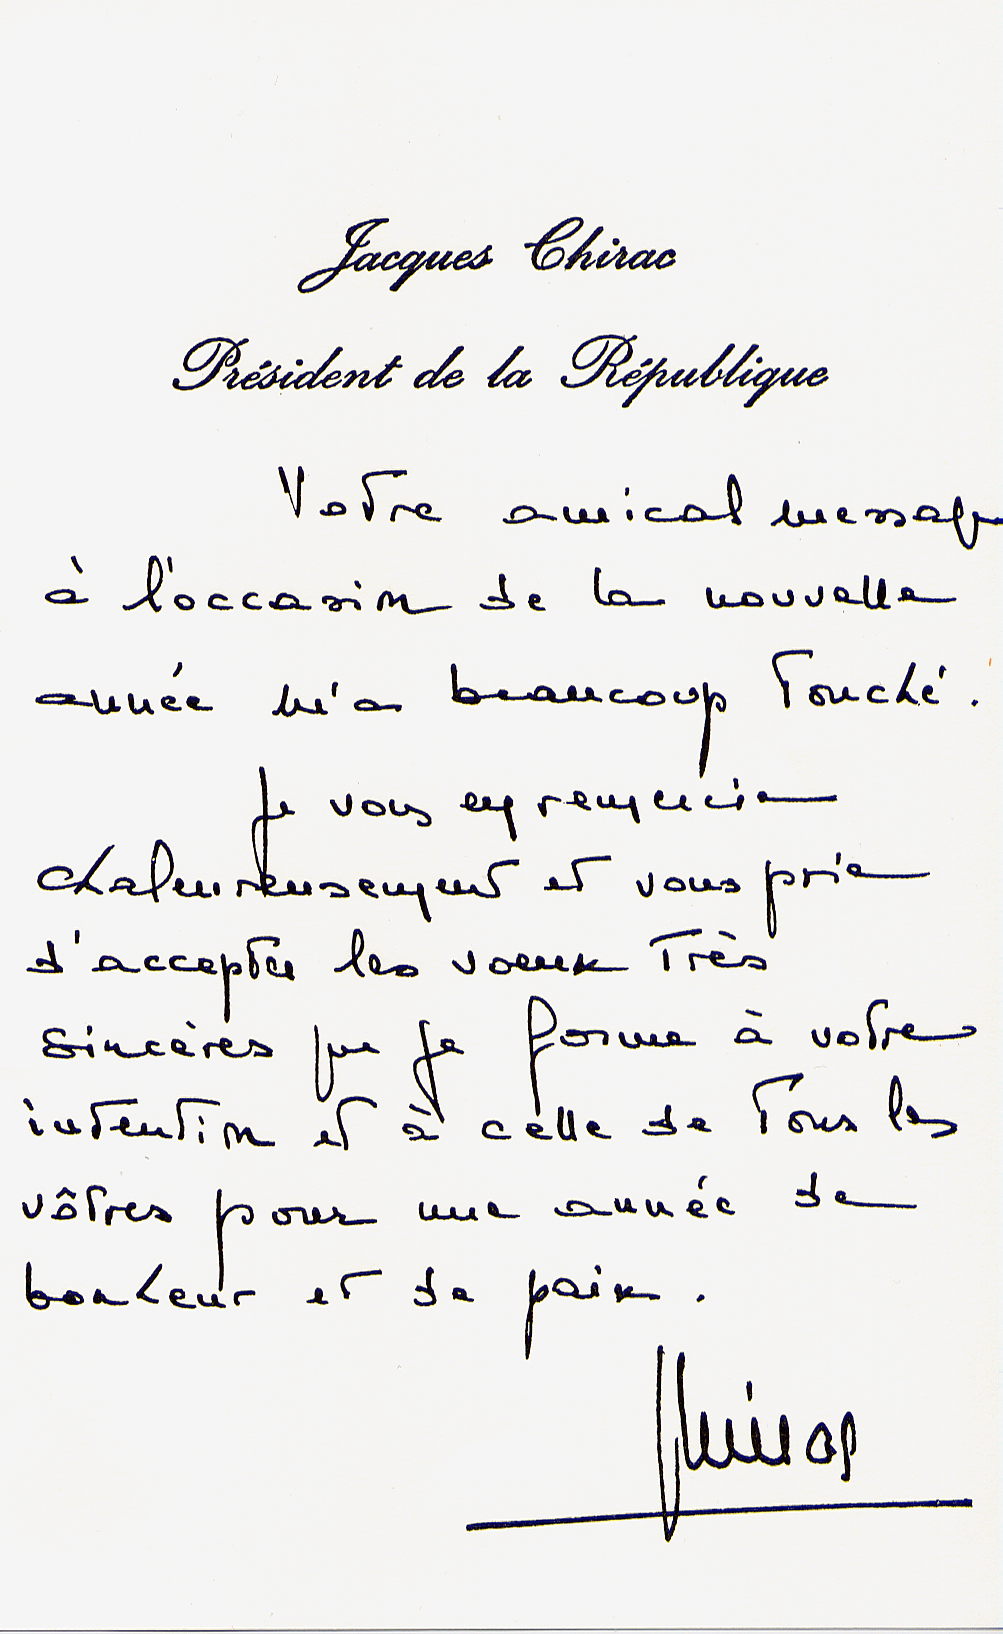 Jacques Chirac
Président de la République
Votre amical message
à l'occasion de la nouvelle
année m'a beaucoup touché.
Je vous en remercie
chaleureusement et vous prie
d'accepter les voeux très
sincères que je forme à votre
intention et à celle de tous les
vôtres pour une année de
bonheur et de paix.